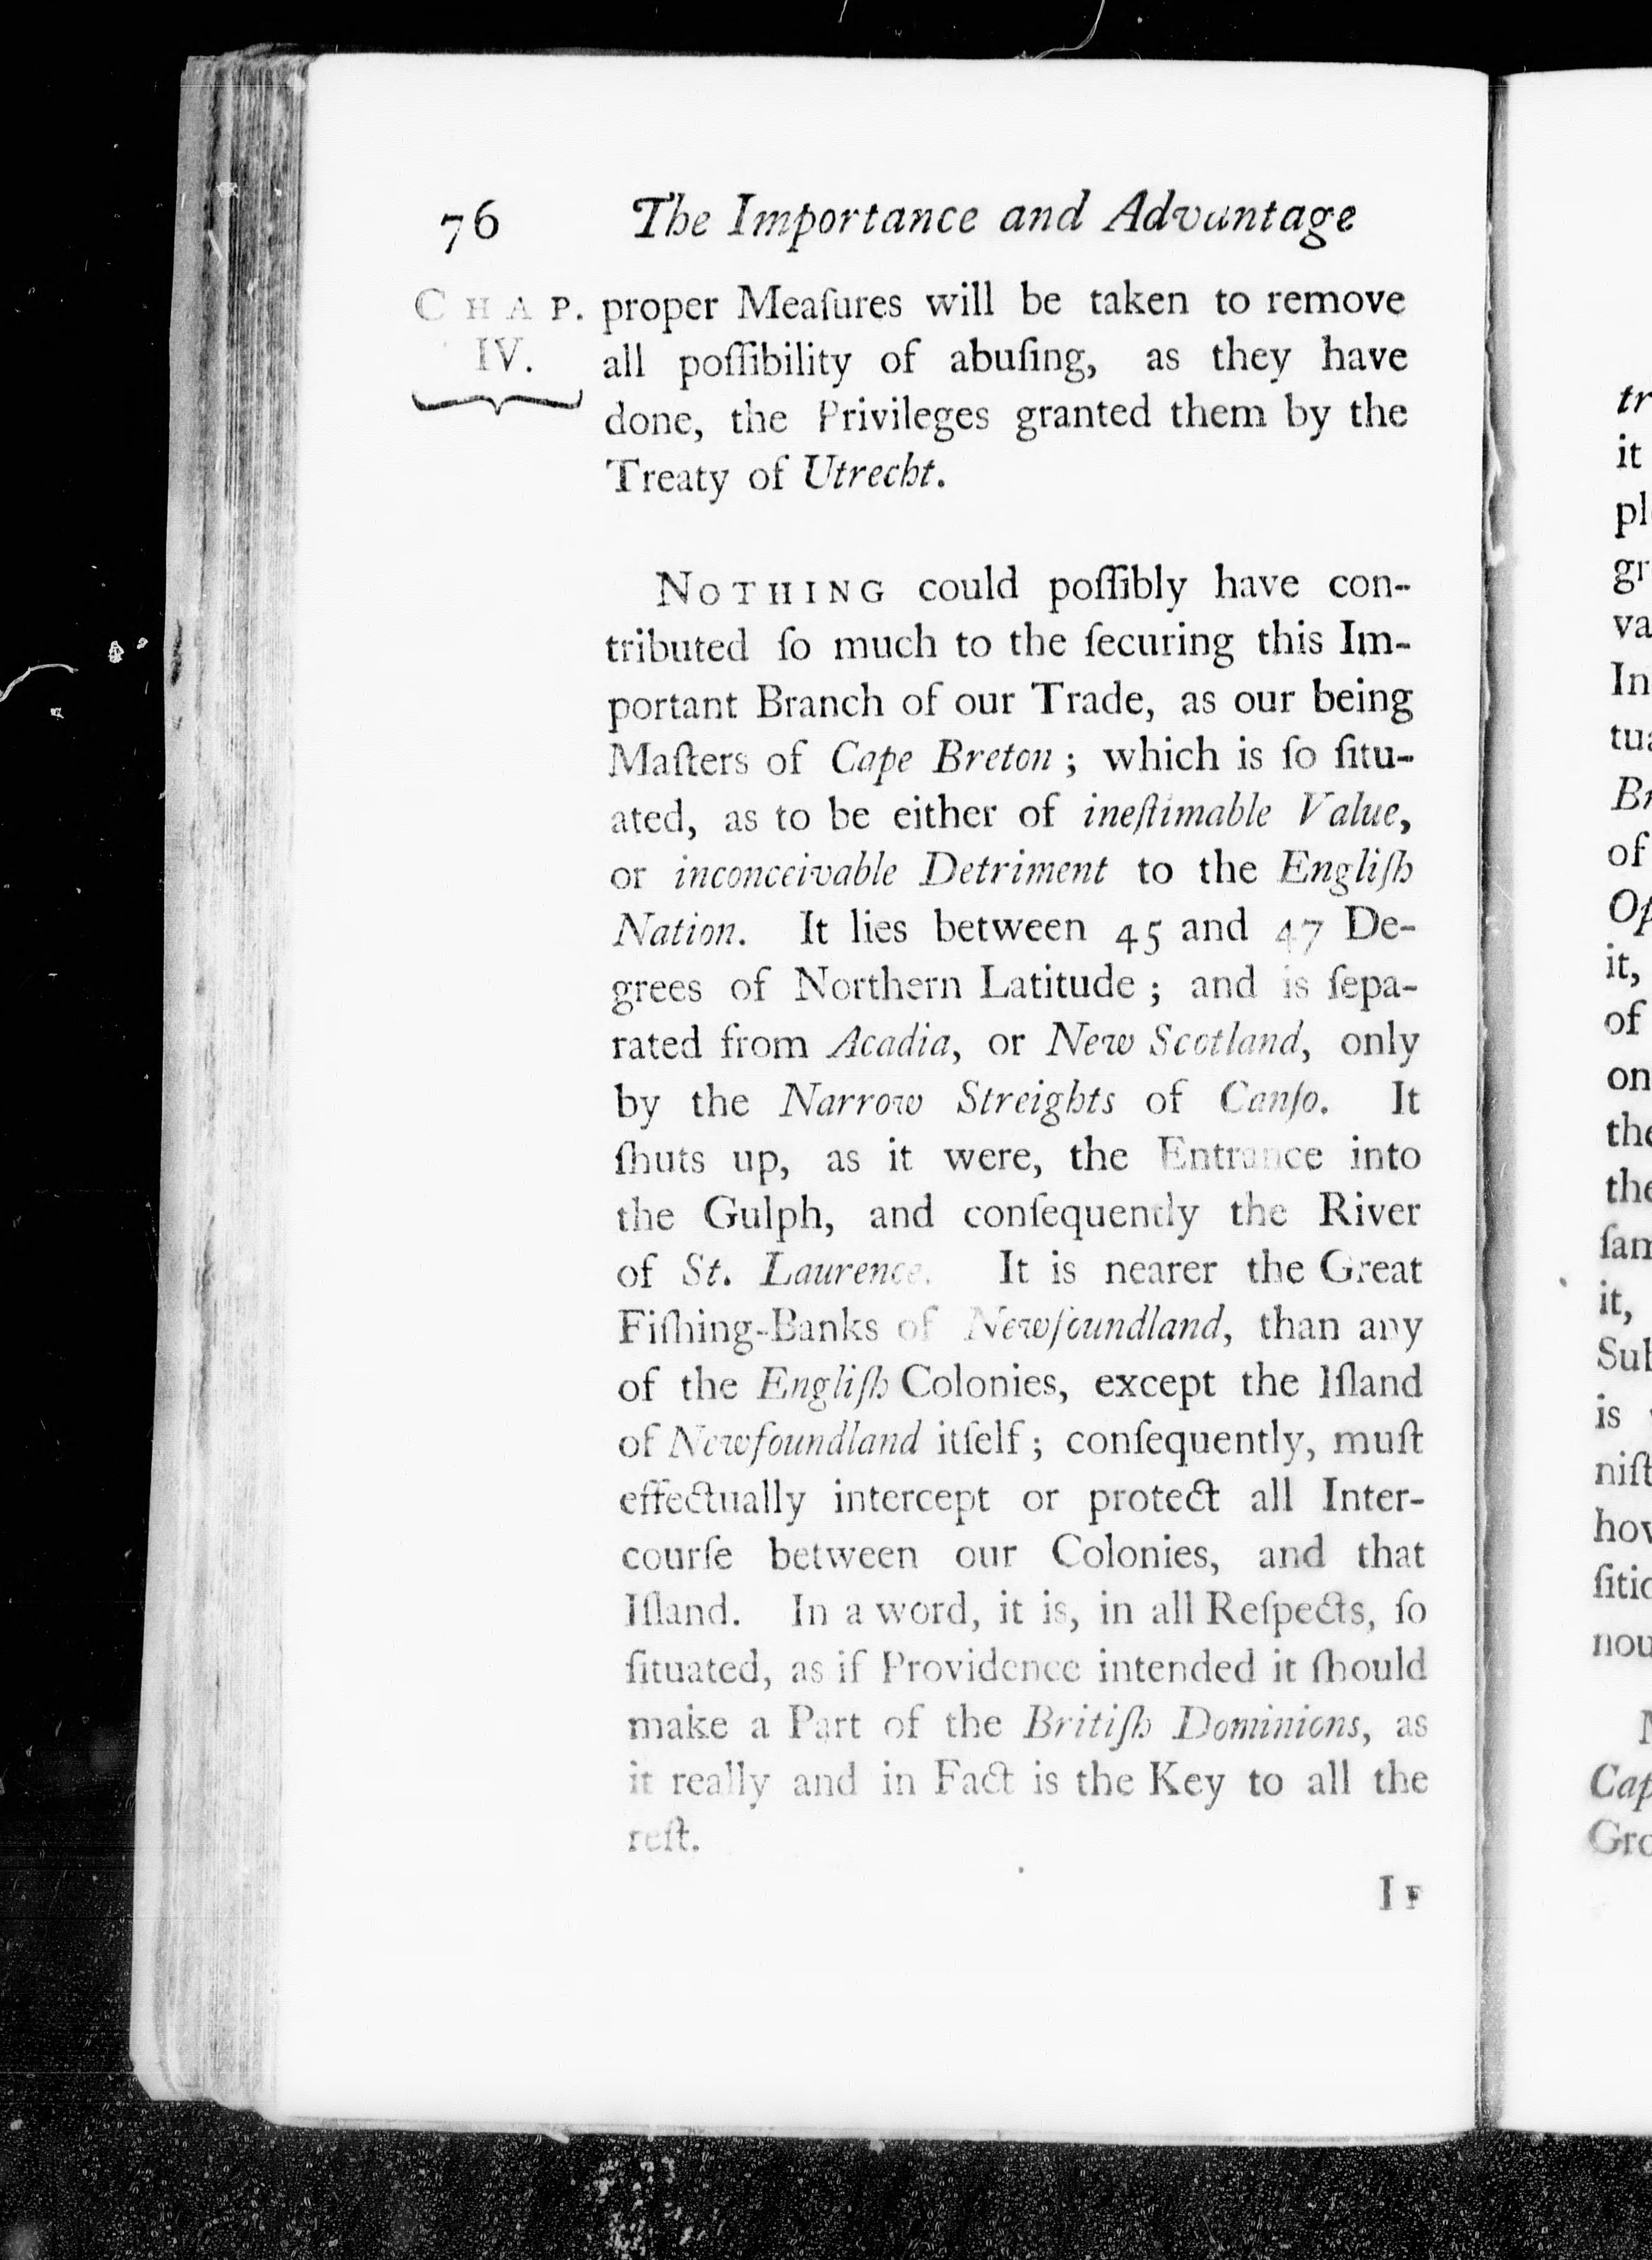 76 The Importance and Advantage
CHAP. IV.
proper Meaſures will be taken to remove
all poſſibility of abuſing, as they have
done, the Privileges granted them by the
Treaty of Utrecht.
NOTHING could poſſibly have con-
tributed ſo much to the ſecuring this Im-
portant Branch of our Trade, as our being
Maſters of Cape Breton ; which is ſo ſitu-
ated, as to be either of ineſtimable Value,
or inconceivable Detriment to the Engliſh
Nation. It lies between 45 and 47 De-
grees of Northern Latitude ; and is ſepa-
rated from Acadia, or New Scotland, only
by the Narrow Streights of Canſo. It
ſhuts up, as it were, the Entrance into
the Gulph, and conſequently the River
of St. Laurence. It is nearer the Great
Fiſhing-Banks of Newfoundland, than any
of the Engliſh Colonies, except the Iſland
of Newfoundland itſelf ; conſequently, muſt
effectually intercept or protect all Inter-
courſe between our Colonies, and that
Iſland. In a word, it is, in all Reſpects, ſo
ſituated, as if Providence intended it ſhould
make a Part of the Britiſh Dominions, as
it really and in Fact is the Key to all the
reſt.
IF
tr
it
pl
gr
va
In
tua
Br
of
Op
it,
of
on
the
the
ſam
it,
Sub
is
niſt
hov
ſitio
nou
Cap
Gro